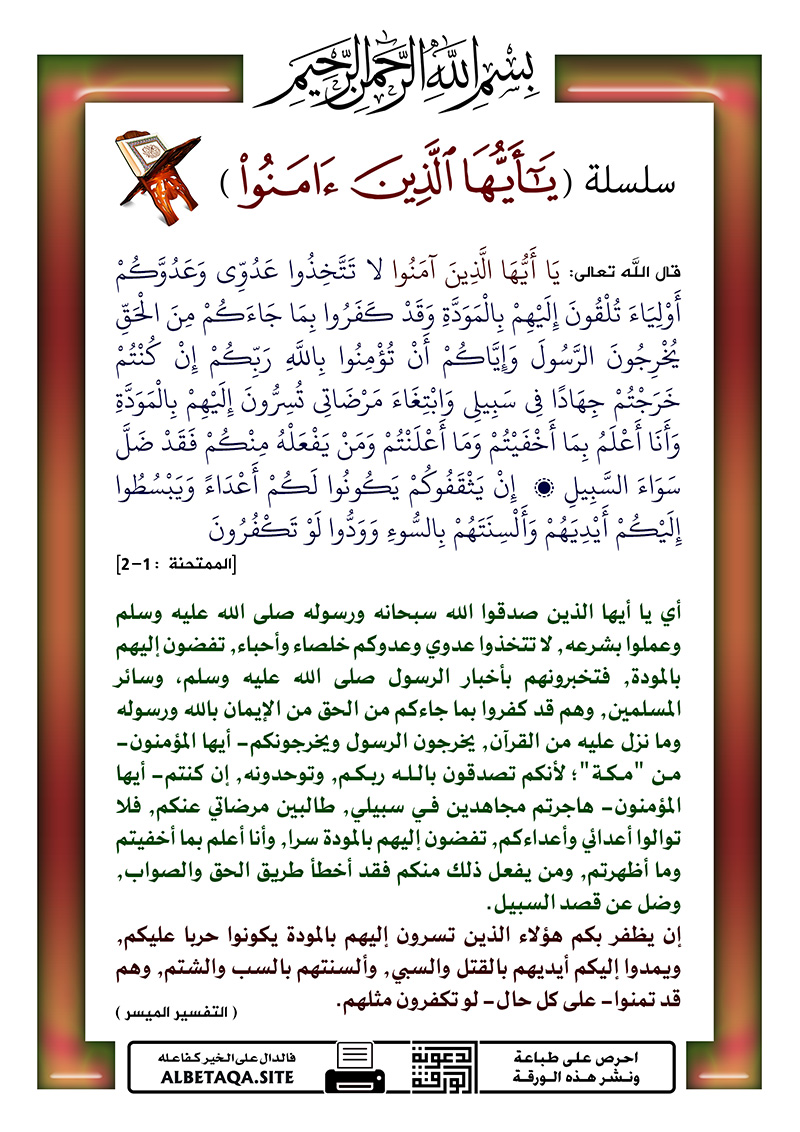 بِسْمِ اللَّهِ الرَّحْمَنِ الرَّحِيمِ
سلسلة ( يَٰٓأَيُّهَا ٱلَّذِينَ ءَامَنُوا۟ )
قال اللَّه تعالى: يَا أَيُّهَا الَّذِينَ آمَنُوا لا تَتَّخِذُوا عَدُوِّى وَعَدُوَّكُمْ
أَوْلِيَاءَ تُلْقُونَ إِلَيْهِمْ بِالْمَوَدَّةِ وَقَدْ كَفَرُوا بِمَا جَاءَكُمْ مِنَ الْحَقِّ
يُخْرِجُونَ الرَّسُولَ وَإِيَّاكُمْ أَنْ تُؤْمِنُوا بِاللَّهِ رَبِّكُمْ إِنْ كُنْتُمْ
خَرَجْتُمْ جِهَادًا فِى سَبِيلِى وَابْتِغَاءَ مَرْضَاتِى تُسِرُّونَ إِلَيْهِمْ بِالْمَوَدَّةِ
وَأَنَا أَعْلَمُ بِمَا أَخْفَيْتُمْ وَمَا أَعْلَنْتُمْ وَمَنْ يَفْعَلْهُ مِنْكُمْ فَقَدْ ضَلَّ
سَوَاءَ السَّبِيلِ ۞ إِنْ يَثْقَفُوكُمْ يَكُونُوا لَكُمْ أَعْدَاءً وَيَبْسُطُوا
إِلَيْكُمْ أَيْدِيَهُمْ وَأَلْسِنَتَهُمْ بِالسُّوءِ وَوَدُّوا لَوْ تَكْفُرُونَ
[الممتحنة :1-2]
أي يا أيها الذين صدقوا الله سبحانه ورسوله صلى الله عليه وسلم
وعملوا بشرعه, لا تتخذوا عدوي وعدوكم خلصاء وأحباء, تفضون إليهم
بالمودة, فتخبرونهم بأخبار الرسول صلى الله عليه وسلم، وسائر
المسلمين, وهم قد كفروا بما جاءكم من الحق من الإيمان بالله ورسوله
وما نزل عليه من القرآن, يخرجون الرسول ويخرجونكم- أيها المؤمنون-
من "مكة"؛ لأنكم تصدقون بالله ربكم, وتوحدونه, إن كنتم- أيها
المؤمنون- هاجرتم مجاهدين في سبيلي, طالبين مرضاتي عنكم, فلا
توالوا أعدائي وأعداءكم, تفضون إليهم بالمودة سرا, وأنا أعلم بما أخفيتم
وما أظهرتم, ومن يفعل ذلك منكم فقد أخطأ طريق الحق والصواب,
وضل عن قصد السبيل.
إن يظفر بكم هؤلاء الذين تسرون إليهم بالمودة يكونوا حربا عليكم,
ويمدوا إليكم أيديهم بالقتل والسبي, وألسنتهم بالسب والشتم, وهم
قد تمنوا- على كل حال- لو تكفرون مثلهم.
( التفسير الميسر )
احرص على طباعة
ونشر هذه الورقة
الدعوية
الورقة
فالدال على الخير كفاعله
ALBETAQA.SITE